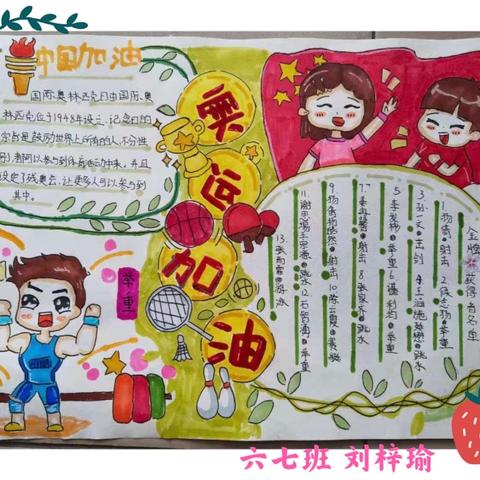 中国加油
国际奥林匹克日由国际奥
林匹克位于1948年设立,记念日的
宗旨是鼓励世界上所有的人,不分性
别,者阿以参与到体育活动中来,并且
设定了残奥会,让更多人可以参与到
其中。
奥运加油
金牌获得者名单
杨倩●射击 2.侯志慧举重
3.孙一文●击剑 4.王涵施廷懋●跳水
5.李发彬●举重 6.谌利均●举重
7.姜冉馨●射击 8.张家齐●跳水
9.杨倩杨皓然●射击 10.陈云霞●赛艇
11.谢思埸王宗源●跳水 12.石智勇●举重
13.张雨霏●游泳
举重
六七班 刘梓瑜